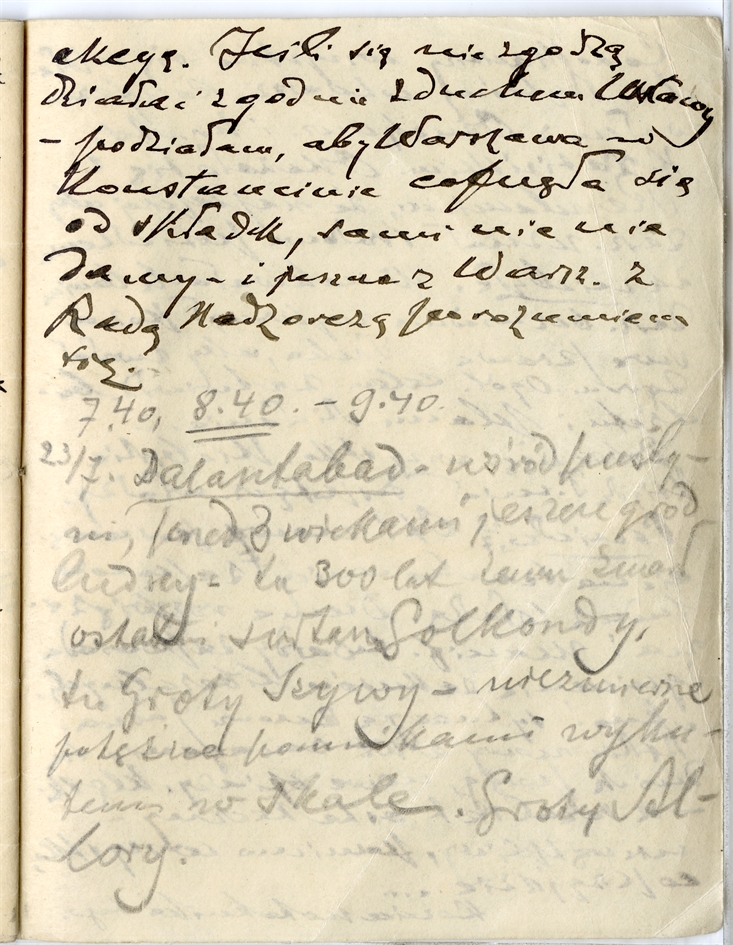 akcyą. Jeśli się nie zgodzą
działać zgodnie z duchem Ustawy
- podziałam, aby Warszawa w
Konstancinie cofnęła się
od składk, sami nie nie
damy - i jeszcze z Warsz. z
Radą Nadzorczą porozumiem
się.
7.40, 8.40. - 9.40.
23/7. Dalantabad - wśród pusty-
ni, przed 3 wiekami jeszcze gród
ludny - tu 300 lat temu zmarł
ostatni sułtan Golkondy.
tu Groty Szywy - niezmiernie
potężne pomnikami wyku-
temi w skale. Groty Al-
lory.